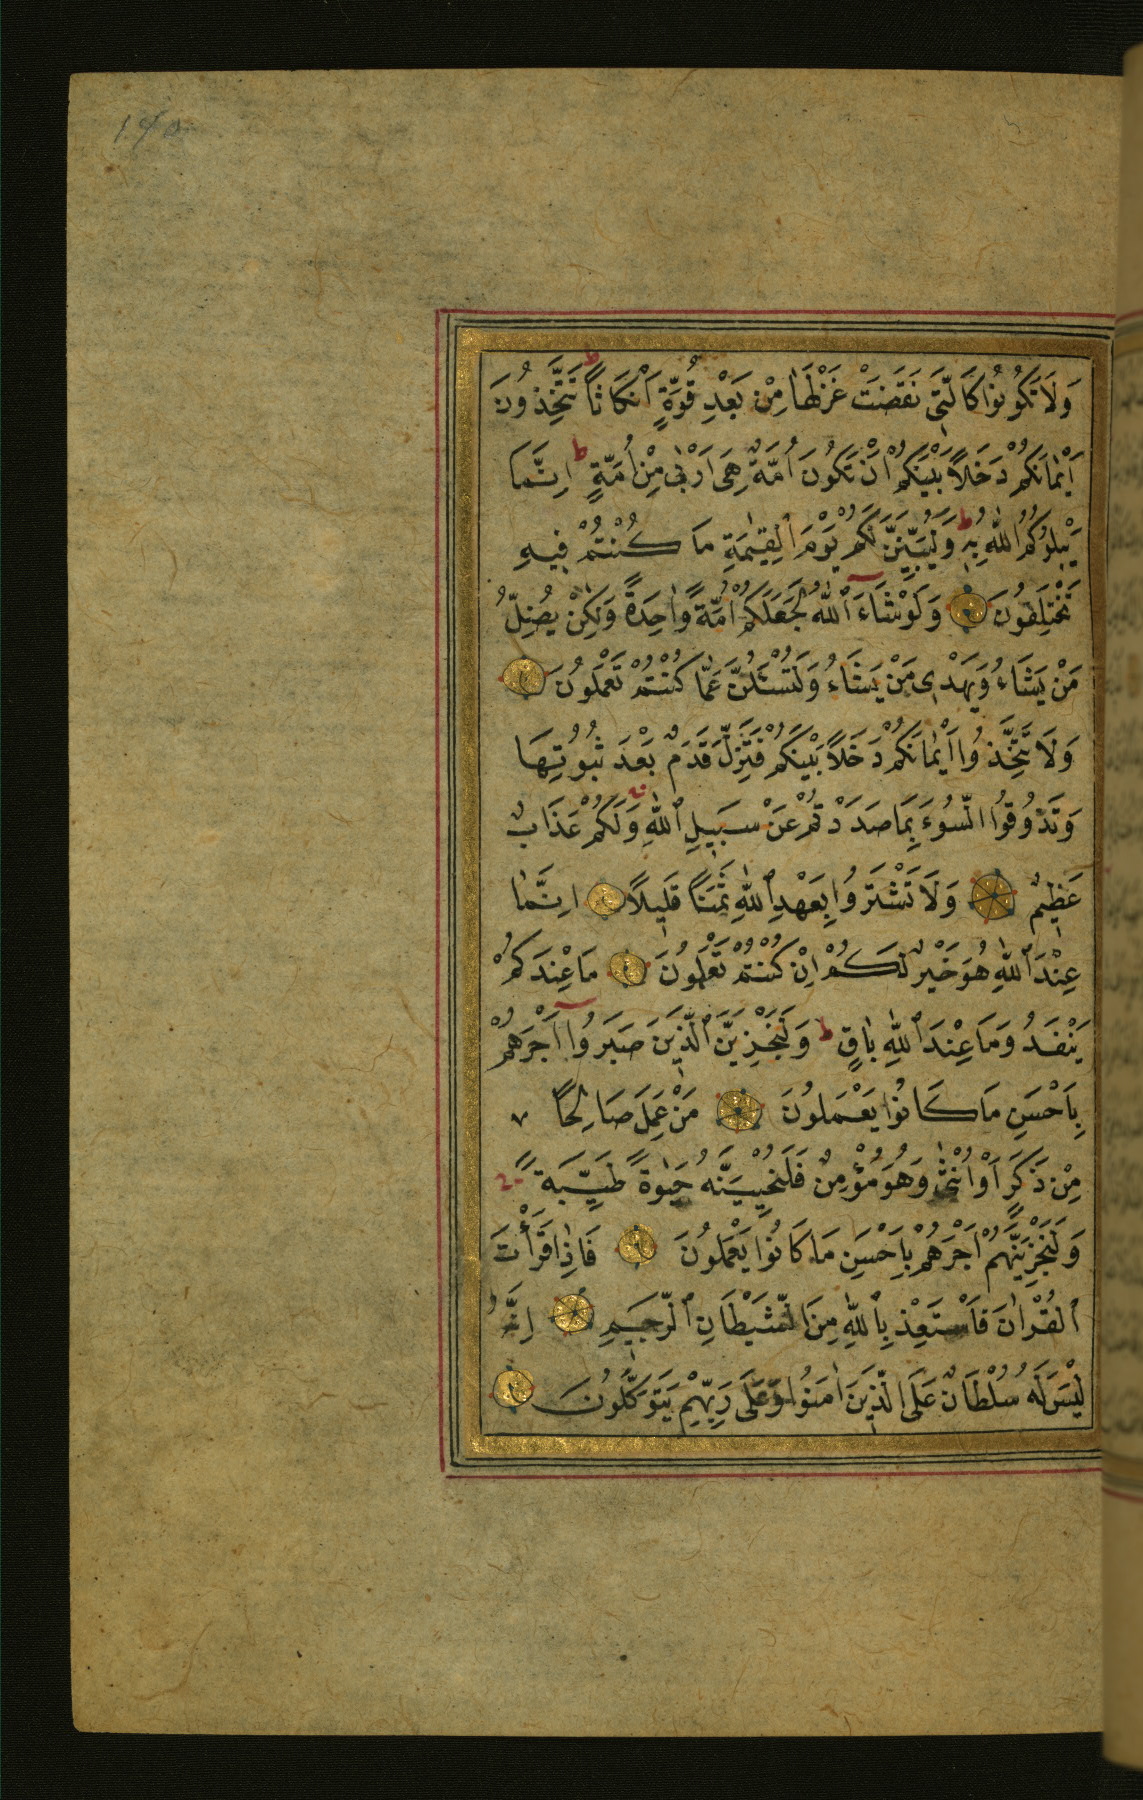 ١٤٥
وَلَا تَكُونُوا كَالَّتِي نَقَضَتْ غَزْلَهَا مِنْ بَعْدِ قُوَّةٍ اَنْكَاثًا ط تَتَّخِذُونَ
اَيْمَانَكُمْ دَخَلًا بَيْنَكُمْ اَنْ تَكُونَ اُمَّةٌ هِيَ اَرْبٰى مِنْ اُمَّةٍ ط اِنَّمَا
يَبْلُوكُمُ اللّٰهُ بِهٖ ط وَلَيُبَيِّنَنَّ لَكُمْ يَوْمَ الْقِيٰمَةِ مَا كُنْتُمْ فِيهِ
تَخْتَلِفُونَ وَلَوْ شَاءَ اللّٰهُ لَجَعَلَكُمْ اُمَّةً وَاحِدَةً وَلٰكِنْ يُضِلُّ
مَنْ يَشَاءُ وَيَهْدِي مَنْ يَشَاءُ وَلَتُسْئَلُنَّ عَمَّا كُنْتُمْ تَعْمَلُونَ
وَلَا تَتَّخِذُوا اَيْمَانَكُمْ دَخَلًا بَيْنَكُمْ فَتَزِلَّ قَدَمٌ بَعْدَ ثُبُوتِهَا
وَتَذُوقُوا السُّوءَ بِمَا صَدَدْتُمْ عَنْ سَبِيلِ اللّٰهِ وَلَكُمْ عَذَابٌ
عَظِيمٌ وَلَا تَشْتَرُوا بِعَهْدِ اللّٰهِ ثَمَنًا قَلِيلًا اِنَّمَا
عِنْدَ اللّٰهِ هُوَ خَيْرٌ لَكُمْ اِنْ كُنْتُمْ تَعْلَمُونَ مَا عِنْدَكُمْ
يَنْفَدُ وَمَا عِنْدَ اللّٰهِ بَاقٍ ط وَلَنَجْزِيَنَّ الَّذِينَ صَبَرُوا اَجْرَهُمْ
بِاَحْسَنِ مَا كَانُوا يَعْمَلُونَ مَنْ عَمِلَ صَالِحًا
مِنْ ذَكَرٍ اَوْ اُنْثٰى وَهُوَ مُؤْمِنٌ فَلَنُحْيِيَنَّهُ حَيٰوةً طَيِّبَةً
وَلَنَجْزِيَنَّهُمْ اَجْرَهُمْ بِاَحْسَنِ مَا كَانُوا يَعْمَلُونَ فَاِذَا قَرَأْتَ
الْقُرْاٰنَ فَاسْتَعِذْ بِاللّٰهِ مِنَ الشَّيْطَانِ الرَّجِيمِ اِنَّهُ
لَيْسَ لَهُ سُلْطَانٌ عَلَى الَّذِينَ اٰمَنُوا وَعَلَى رَبِّهِمْ يَتَوَكَّلُونَ